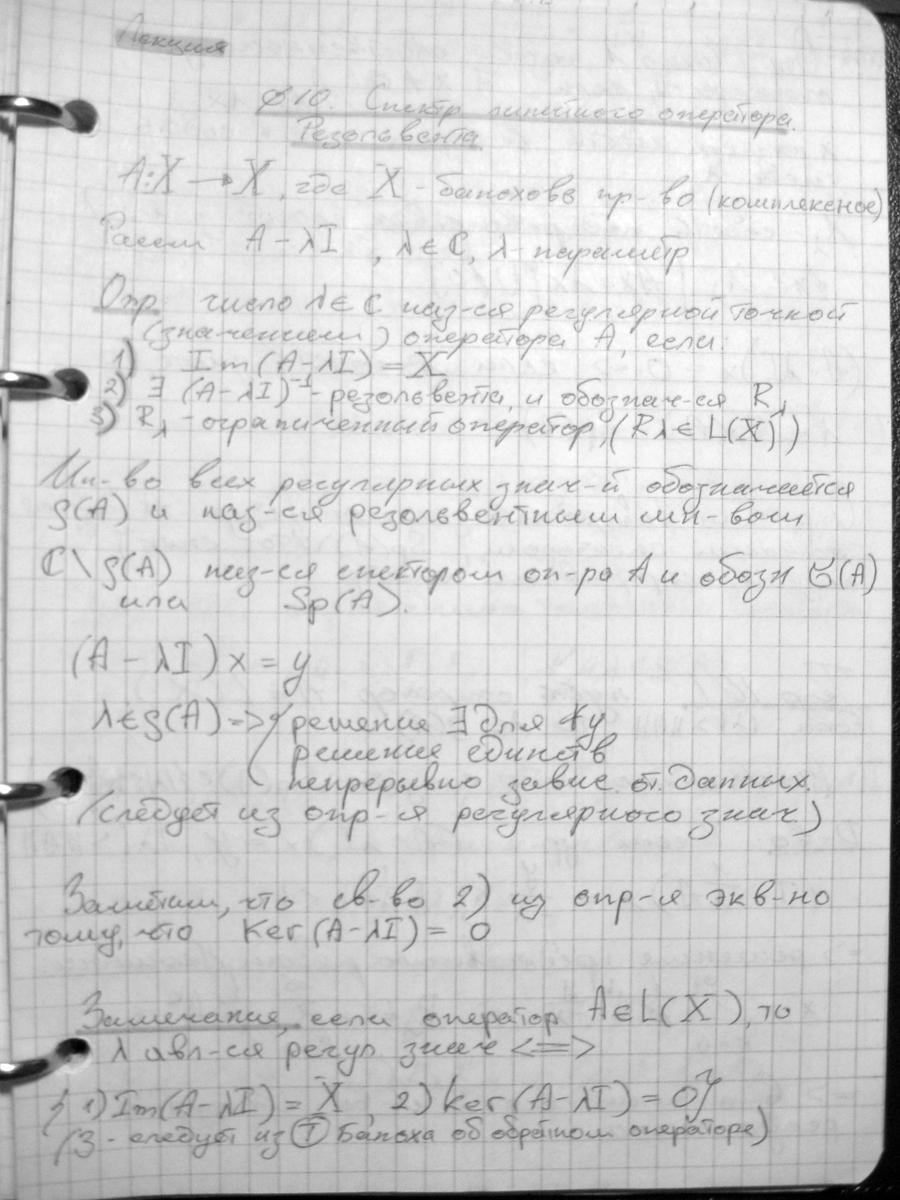 Лекция
§10. Спектр линейного оператора.
Резольвента
A: X → X, где X - банохово пр-во (комплексное)
Рассм A - λI , λ ∈ ℂ, λ - параметр
Опр число λ ∈ ℂ наз-ся регулярной точкой
(значением) оператора A, если:
1) Im(A - λI) = X
2) ∃ (A - λI)⁻¹ - резольвента, и обознач-ся R_λ
3) R_λ - ограниченный оператор, (R_λ ∈ L(X))
Мн-во всех регулярных знач-й обозначается
ρ(A) и наз-ся резольвентным мн-вом
ℂ \ ρ(A) наз-ся спектором оп-ра A и обозн σ(A)
или Sp(A).
(A - λI) x = y
λ ∈ ρ(A) => { решение ∃ для ∀y
решения единств
непрерывно завис. от данных.
(следует из опр-я регулярного знач)
Заметим, что св-во 2) из опр-я экв-но
тому, что Ker(A - λI) = 0
Замечания, если оператор A ∈ L(X), то
λ явл-ся регул знач <=>
{ 1) Im(A - λI) = X , 2) ker(A - λI) = 0 }
(3 - следует из Ⓣ Баноха об обратном операторе)